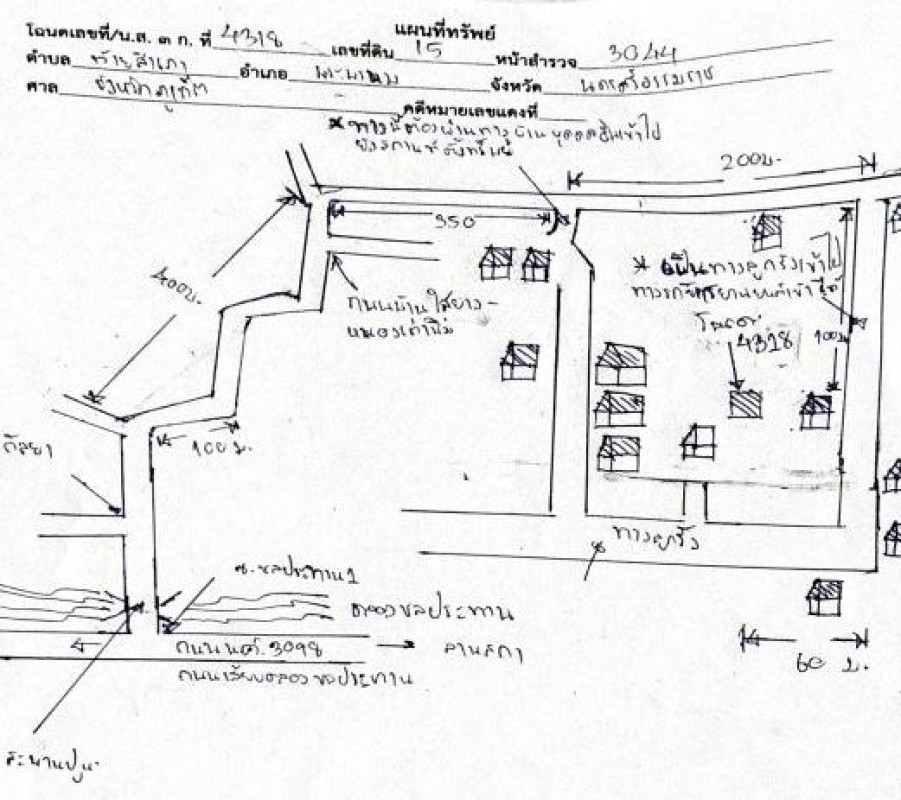 แผนที่ทรัพย์
โฉนดเลขที่/น.ส. ๓ ก. ที่ 4318 เลขที่ดิน 15 หน้าสำรวจ 3044
ตำบล ท้ายสำเภา อำเภอ พระพรหม จังหวัด นครศรีธรรมราช
ศาล จังหวัดภูเก็ต คดีหมายเลขแดงที่
* ทางนี้ต้องผ่านทาง บุคคลอื่นเข้าไป
ยังสถานที่ตั้งทรัพย์
200ม.
350
400ม.
* เป็นทางลูกรังเข้าไป
ทางรถจักรยานยนต์เข้าได้
ถนนบ้านใสยาง -
โฉนด
4318
100ม
100ม.
ทางลูกรัง
ซ.ชลประทาน 2
คลองชลประทาน
ถนน นศ.3098
ลานสกา
ถนนเรียบคลองชลประทาน
60 ม.
สะพานปูน